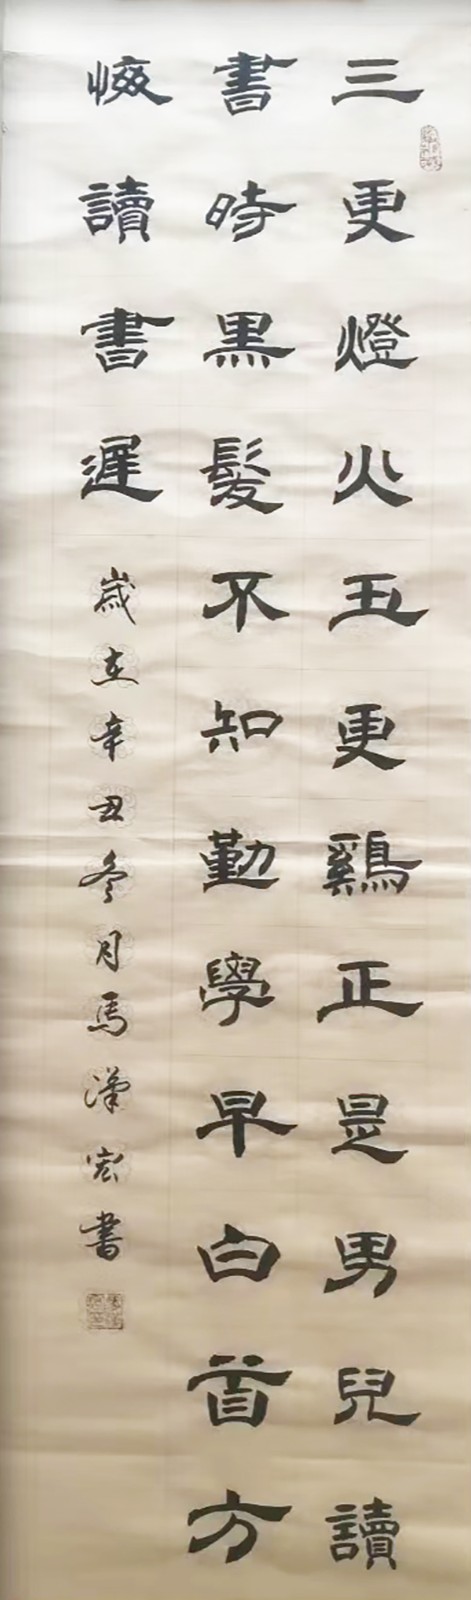 三更燈火五更鷄正是男兒讀
書時黒髮不知勤學早白首方
悔讀書遲
歲在辛丑冬月馬漢宏書